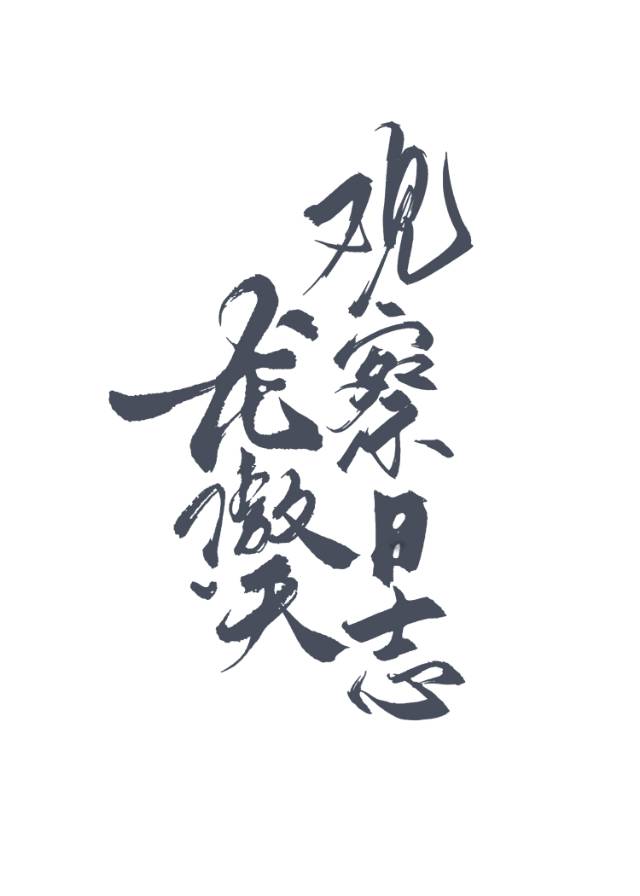 龙傲天
观察日志